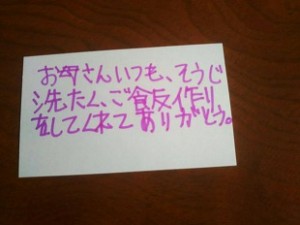 お母さんいつも、そうじ
洗たく、ご食反作り
をしてくれて ありがとう。